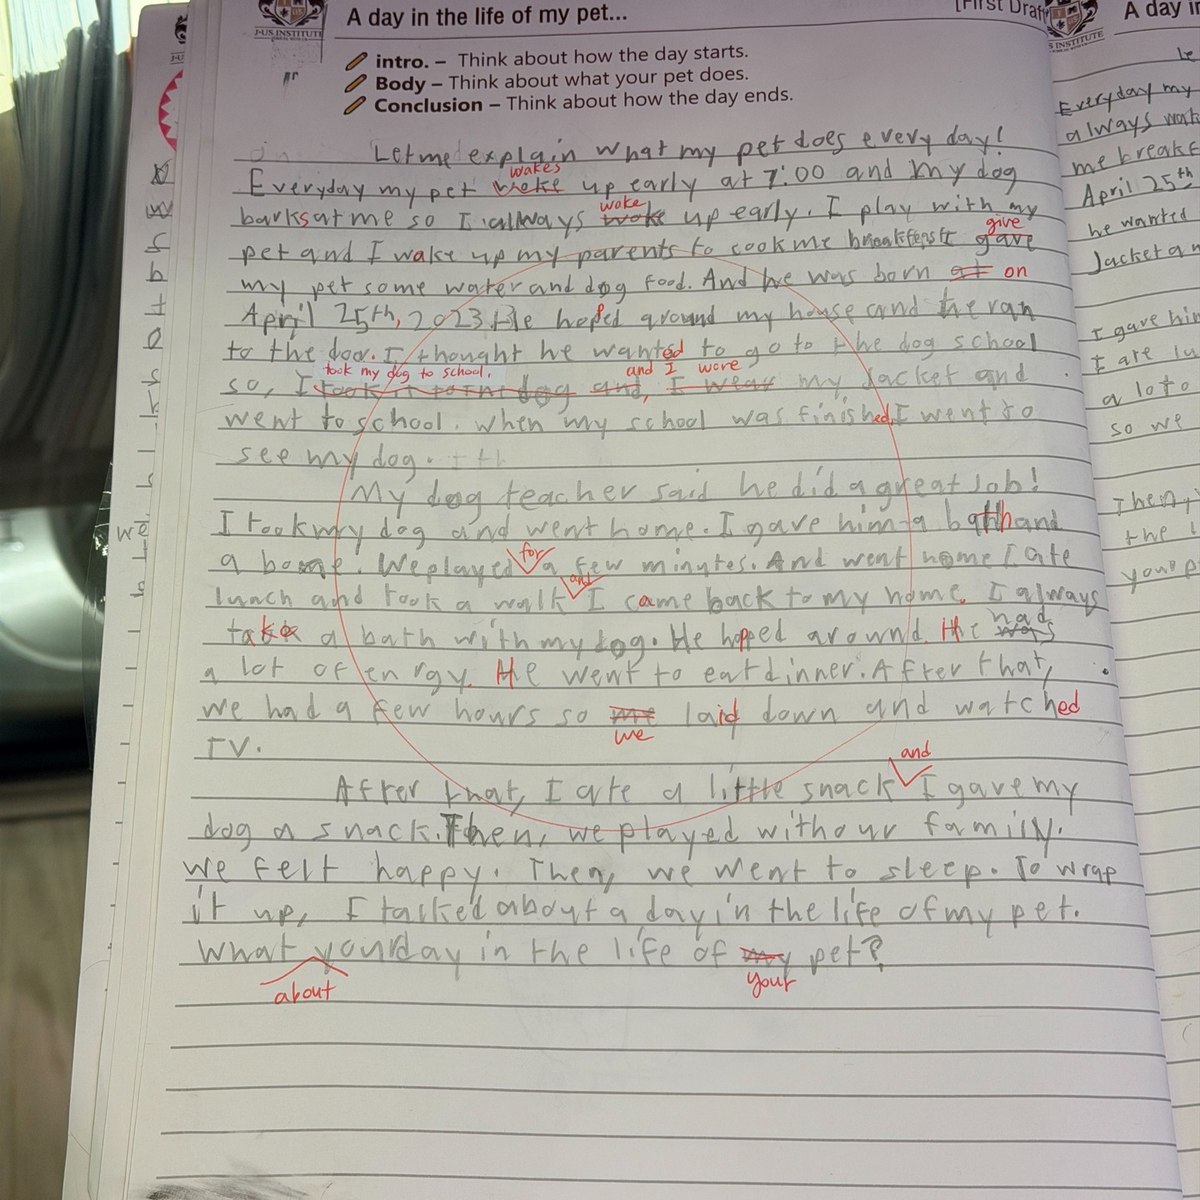 J-US INSTITUTE
A day in the life of my pet...
[First Draft
intro. – Think about how the day starts.
Body – Think about what your pet does.
Conclusion – Think about how the day ends.
Let me explain what my pet does every day!
wakes
Everyday my pet woke up early at 7:00 and my dog
woke
barks at me so I always woke up early. I play with my
give
pet and I wake up my parents to cook me breakfast gave
my pet some water and dog food. And he was born at on
April 25th, 2023. He hoped around my house and he ran
to the door. I thought he wanted to go to the dog school
took my dog to school. and I wore
so, I took it to the dog and, I wear my Jacket and
went to school. when my school was finished, I went to
see my dog.
My dog teacher said he did a great Job!
I took my dog and went home. I gave him a bath and
for
a bone. We played a few minutes. And went home I ate
and
lunch and took a walk I came back to my home. I always
had
take a bath with my dog. He hopped around. He was
a lot of energy. He went to eat dinner. After that,
we had a few hours so me laid down and watched
we
TV.
and
After that, I ate a little snack I gave my
dog a snack. Then, we played with our family.
we felt happy. Then, we went to sleep. To wrap
it up, I talked about a day in the life of my pet.
What your day in the life of my pet?
about your
INSTITUTE
A day in
Everyday my
always
me breakf
April 25th
he wanted
Jacket an
I gave him
I ate lu
a lot o
so we
Then,
the l
your p